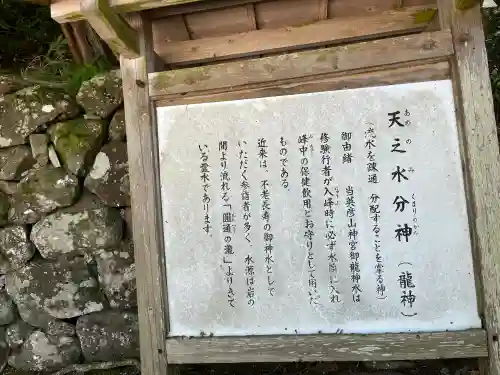 天之水分神（龍神）
あめ の み くまり の かみ
（流水を疎通 分配することを掌る神）
御由緒 当英彦山神宮御龍神水は
修験行者が入峰時に必ず水筒に入れ
峰中の保健飲用とお守りとして用いた
ものである。
近来は、不老長寿の御神水として
いただく参詣者が多く、水源は岩の
間より流れる「圓通の瀧」よりきて
いる霊水であります。